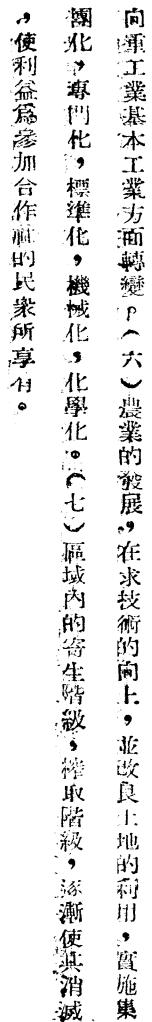 向重工業基本工業方面轉變。(六)農業的發展,在求技術的向上,並改良土地的利用,實施集
團化,專門化,標準化,機械化,化學化。(七)區域內的寄生階級,榨取階級,逐漸使其消滅
,使利益爲參加合作社的民衆所享有。